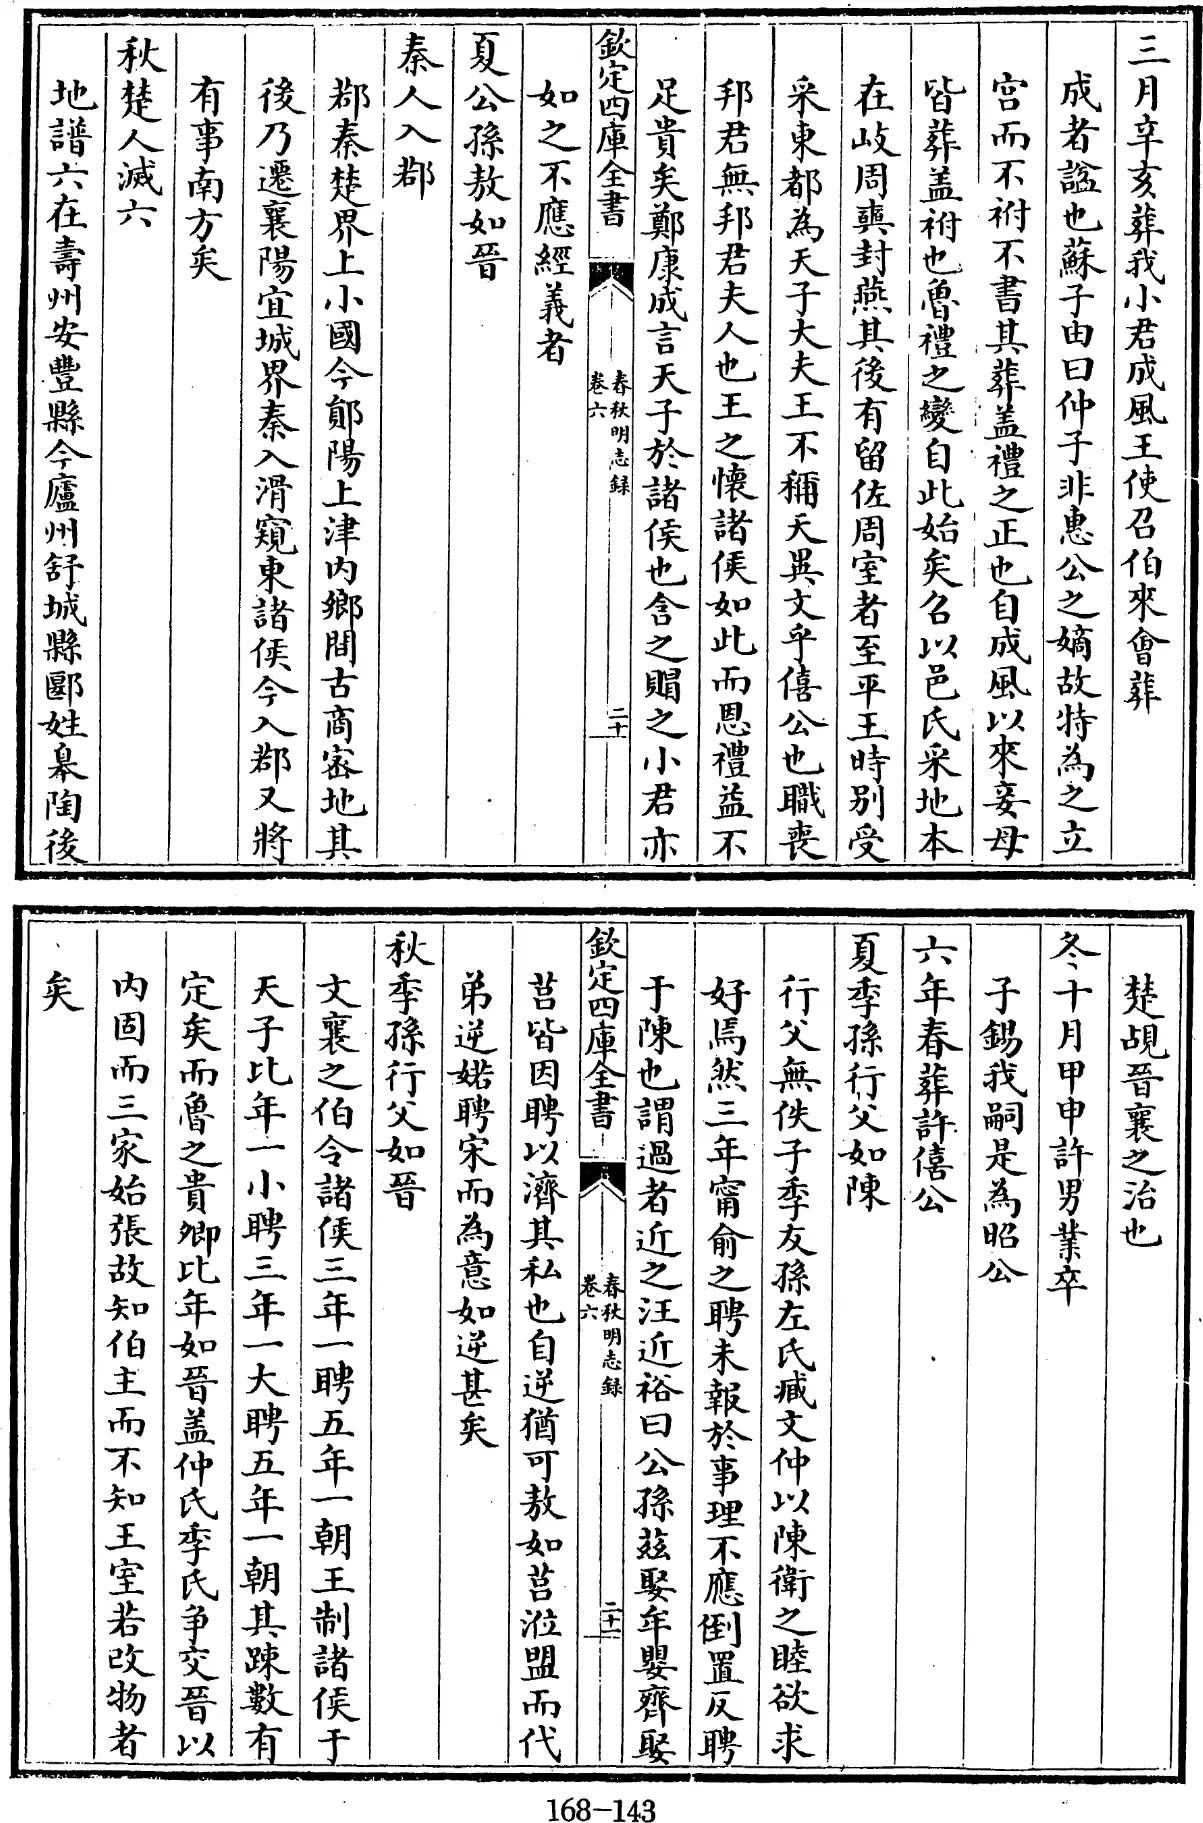 三月辛亥葬我小君成風王使召伯來會葬
成者諡也蘇子由曰仲子非惠公之嫡故特為之立
宫而不祔不書其葬盖禮之正也自成風以來妾母
皆葬盖祔也魯禮之變自此始矣召以邑氏采地本
在岐周奭封燕其後有留佐周室者至平王時别受
采東都為天子大夫王不稱天異文乎僖公也職喪
邦君無邦君夫人也王之懐諸侯如此而恩禮益不
足貴矣鄭康成言天子於諸侯也含之賵之小君亦
欽定四庫全書
春秋明志録
卷六
二十
如之不應經義者
夏公孫敖如晉
秦人入鄀
鄀秦楚界上小國今鄖陽上津内鄉間古商宻地其
後乃遷襄陽宜城界秦入滑窺東諸侯今入鄀又將
有事南方矣
秋楚人滅六
地譜六在壽州安豐縣今廬州舒城縣郾姓臯陶後
楚覘晉襄之治也
冬十月甲申許男業卒
子錫我嗣是為昭公
六年春葬許僖公
夏季孫行父如陳
行父無佚子季友孫左氏臧文仲以陳衛之睦欲求
好焉然三年甯俞之聘未報於事理不應倒置反聘
于陳也謂過者近之汪近裕曰公孫茲娶牟嬰齊娶
欽定四庫全書
春秋明志録
卷六
二十一
莒皆因聘以濟其私也自逆猶可敖如莒涖盟而代
弟逆婼聘宋而為意如逆甚矣
秋季孫行父如晉
文襄之伯令諸侯三年一聘五年一朝王制諸侯于
天子比年一小聘三年一大聘五年一朝其踈數有
定矣而魯之貴卿比年如晉盖仲氏季氏争交晉以
内固而三家始張故知伯主而不知王室若改物者
矣
168-143